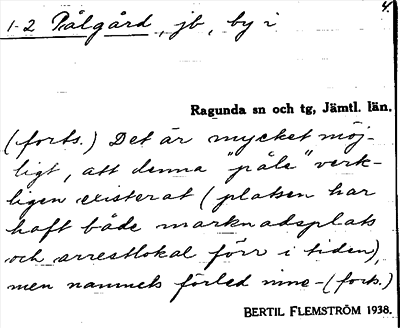 4.
1-2 Pålgård, jb, by i
Ragunda sn och tg, Jämtl. län.
(forts.) Det är mycket möj-
ligt, att denna "påle" verk-
ligen existerat (platsen har
haft både marknadsplats
och arrestlokal förr i tiden),
men namnets förled inne-(forts.)
BERTIL FLEMSTRÖM 1938.